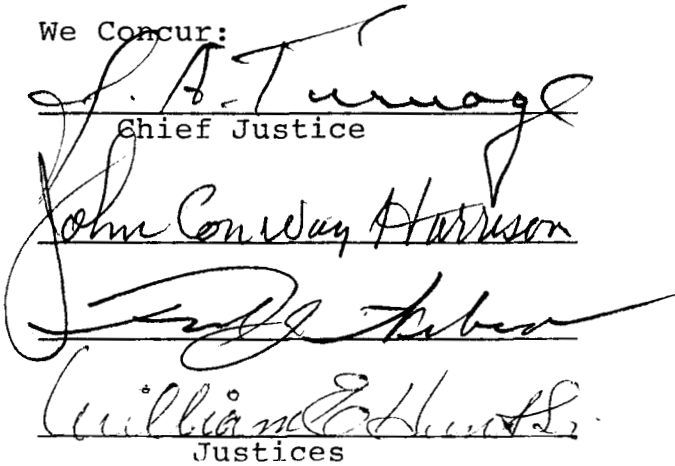 We Concur:
J. A. Turnage
Chief Justice
John Conway Harrison
William E. Hunt Sr.
Justices